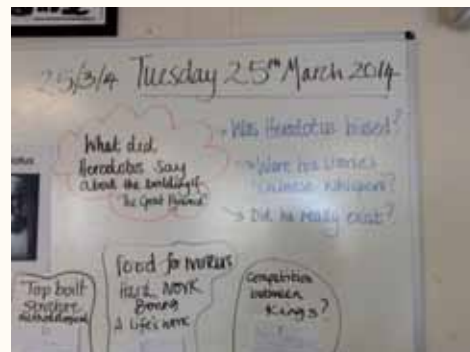 25/3/4 Tuesday 25th March 2014
What did
Herodotus say
about the building of
"The Great Pyramid"
Was Herodotus biased?
Were his stories
chinese whispers?
Did he really exist?
Food for workers
Hard work
Boring
A Life's work
Top built
Structure
Competition
between
Kings?